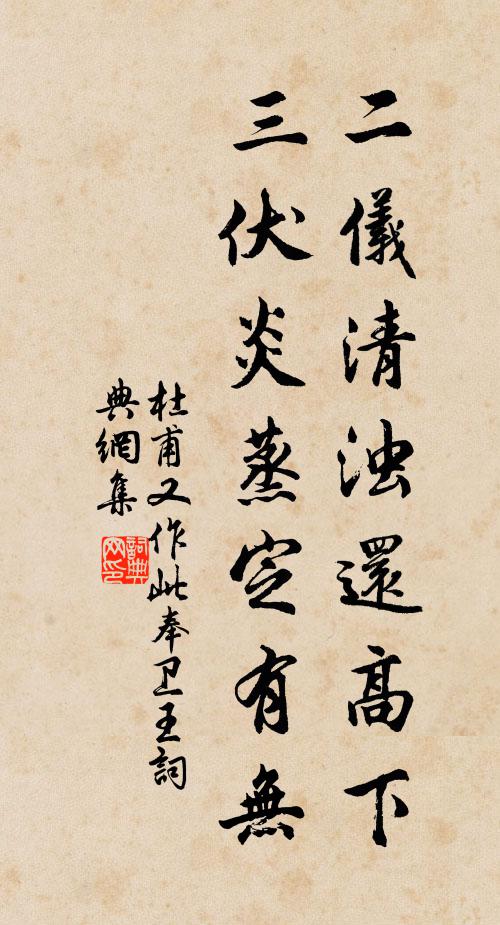 二儀清浊還高下
三伏炎蒸定有無
杜甫又作此奉卫王詞
典網集
詞典
网印